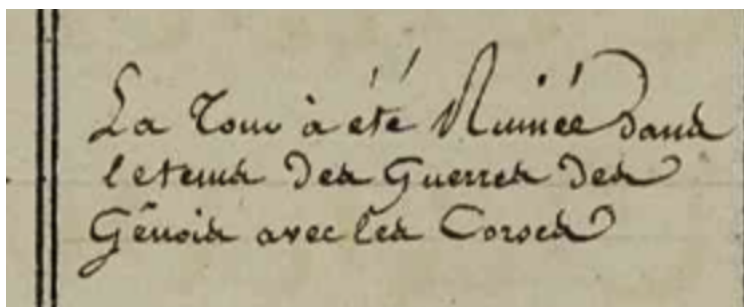 La Tour à été Ruinée dans
le tems des Guerres des
Génois avec les Corses